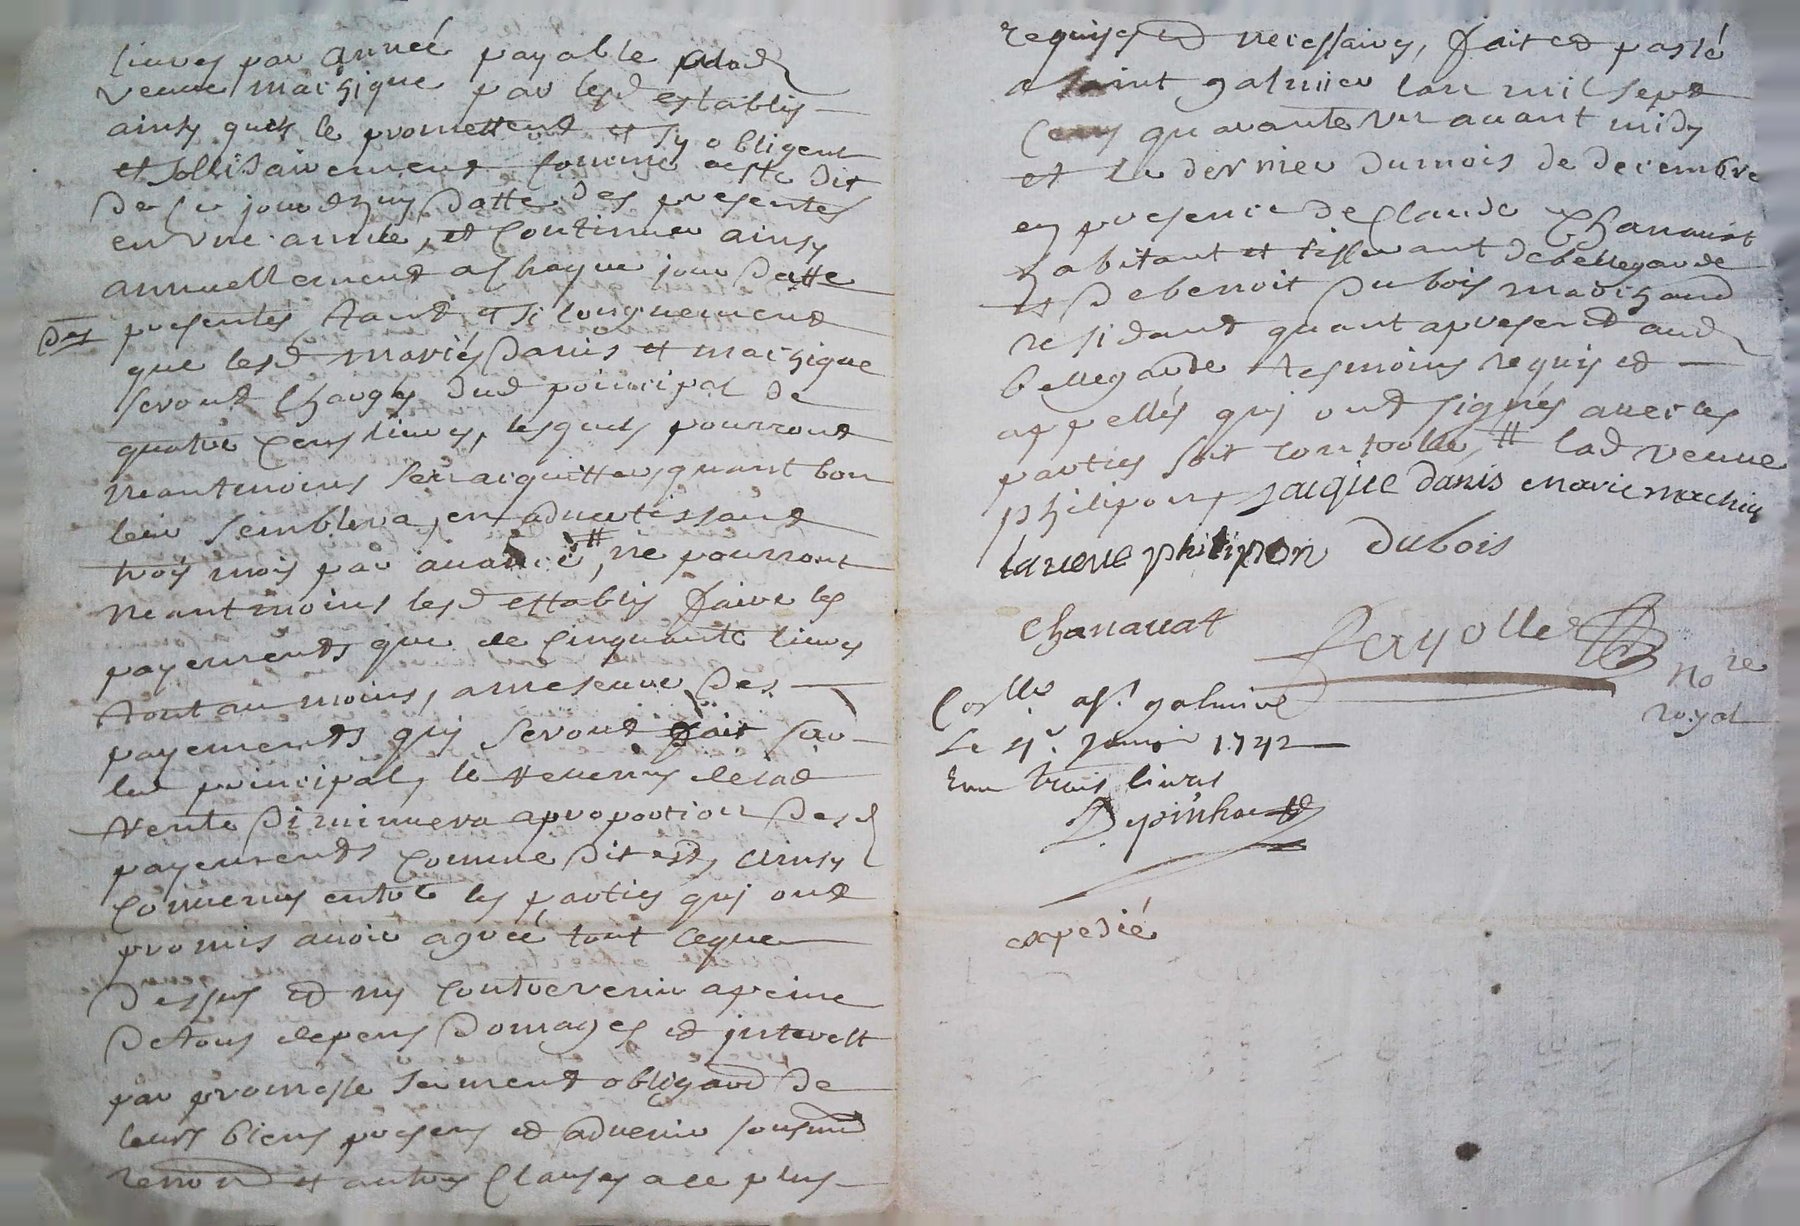 livres par année payable alad
veuve machique par lesd establis
ainsy quils le promettent et sy obligent
et sollidairement comme est dit
de ce jourdhuy datte des presentes
en une année, et continuer ainsy
annuellement achaque jour datte
des presentes tant et si longuement
que lesd mariés danis et machique
seront chargés dud principal de
quatre cens livres, lesquels pourront
neantmoins sen acquitter quant bon
leur semblera, en advertissant
trois mois par avance, # ne pourront
neantmoins lesd establis faire les
payements que de cinquante livres
tout au moins, amesure des
payements qui seront fait sur
led principal, le revenu delad
rente diminuera aproportion desd
payements comme dit est, ainsy
convenus entre les parties qui ont
promis avoir agréé tout ceque
dessus et ny contrevenir apeine
detous depens domages et interest
par promesse serment obligaon de
leurs biens presens et advenir sousmd
renond et autres clauses ace plus
requises et necessaires, fait et passé
a saint galmier lan mil sept
cens quarante un avant midy
et le dernier dumois de decembre
en presence de Claude Chanauat
habitant et tisserant debellegarde
et de benoit dubois marchand
residant quant apresent aud
bellegarde tesmoins requis et
appellés qui ont signés avec les
parties soit controllé, # lad veuve
philipon, jacque danis marie machique
la veuve philipon dubois
Chanauat fayolle
nore
royal
Collé a st. galmier
Le 4e. janvier 1742
Reçu trois livres
Depinhac
expedié